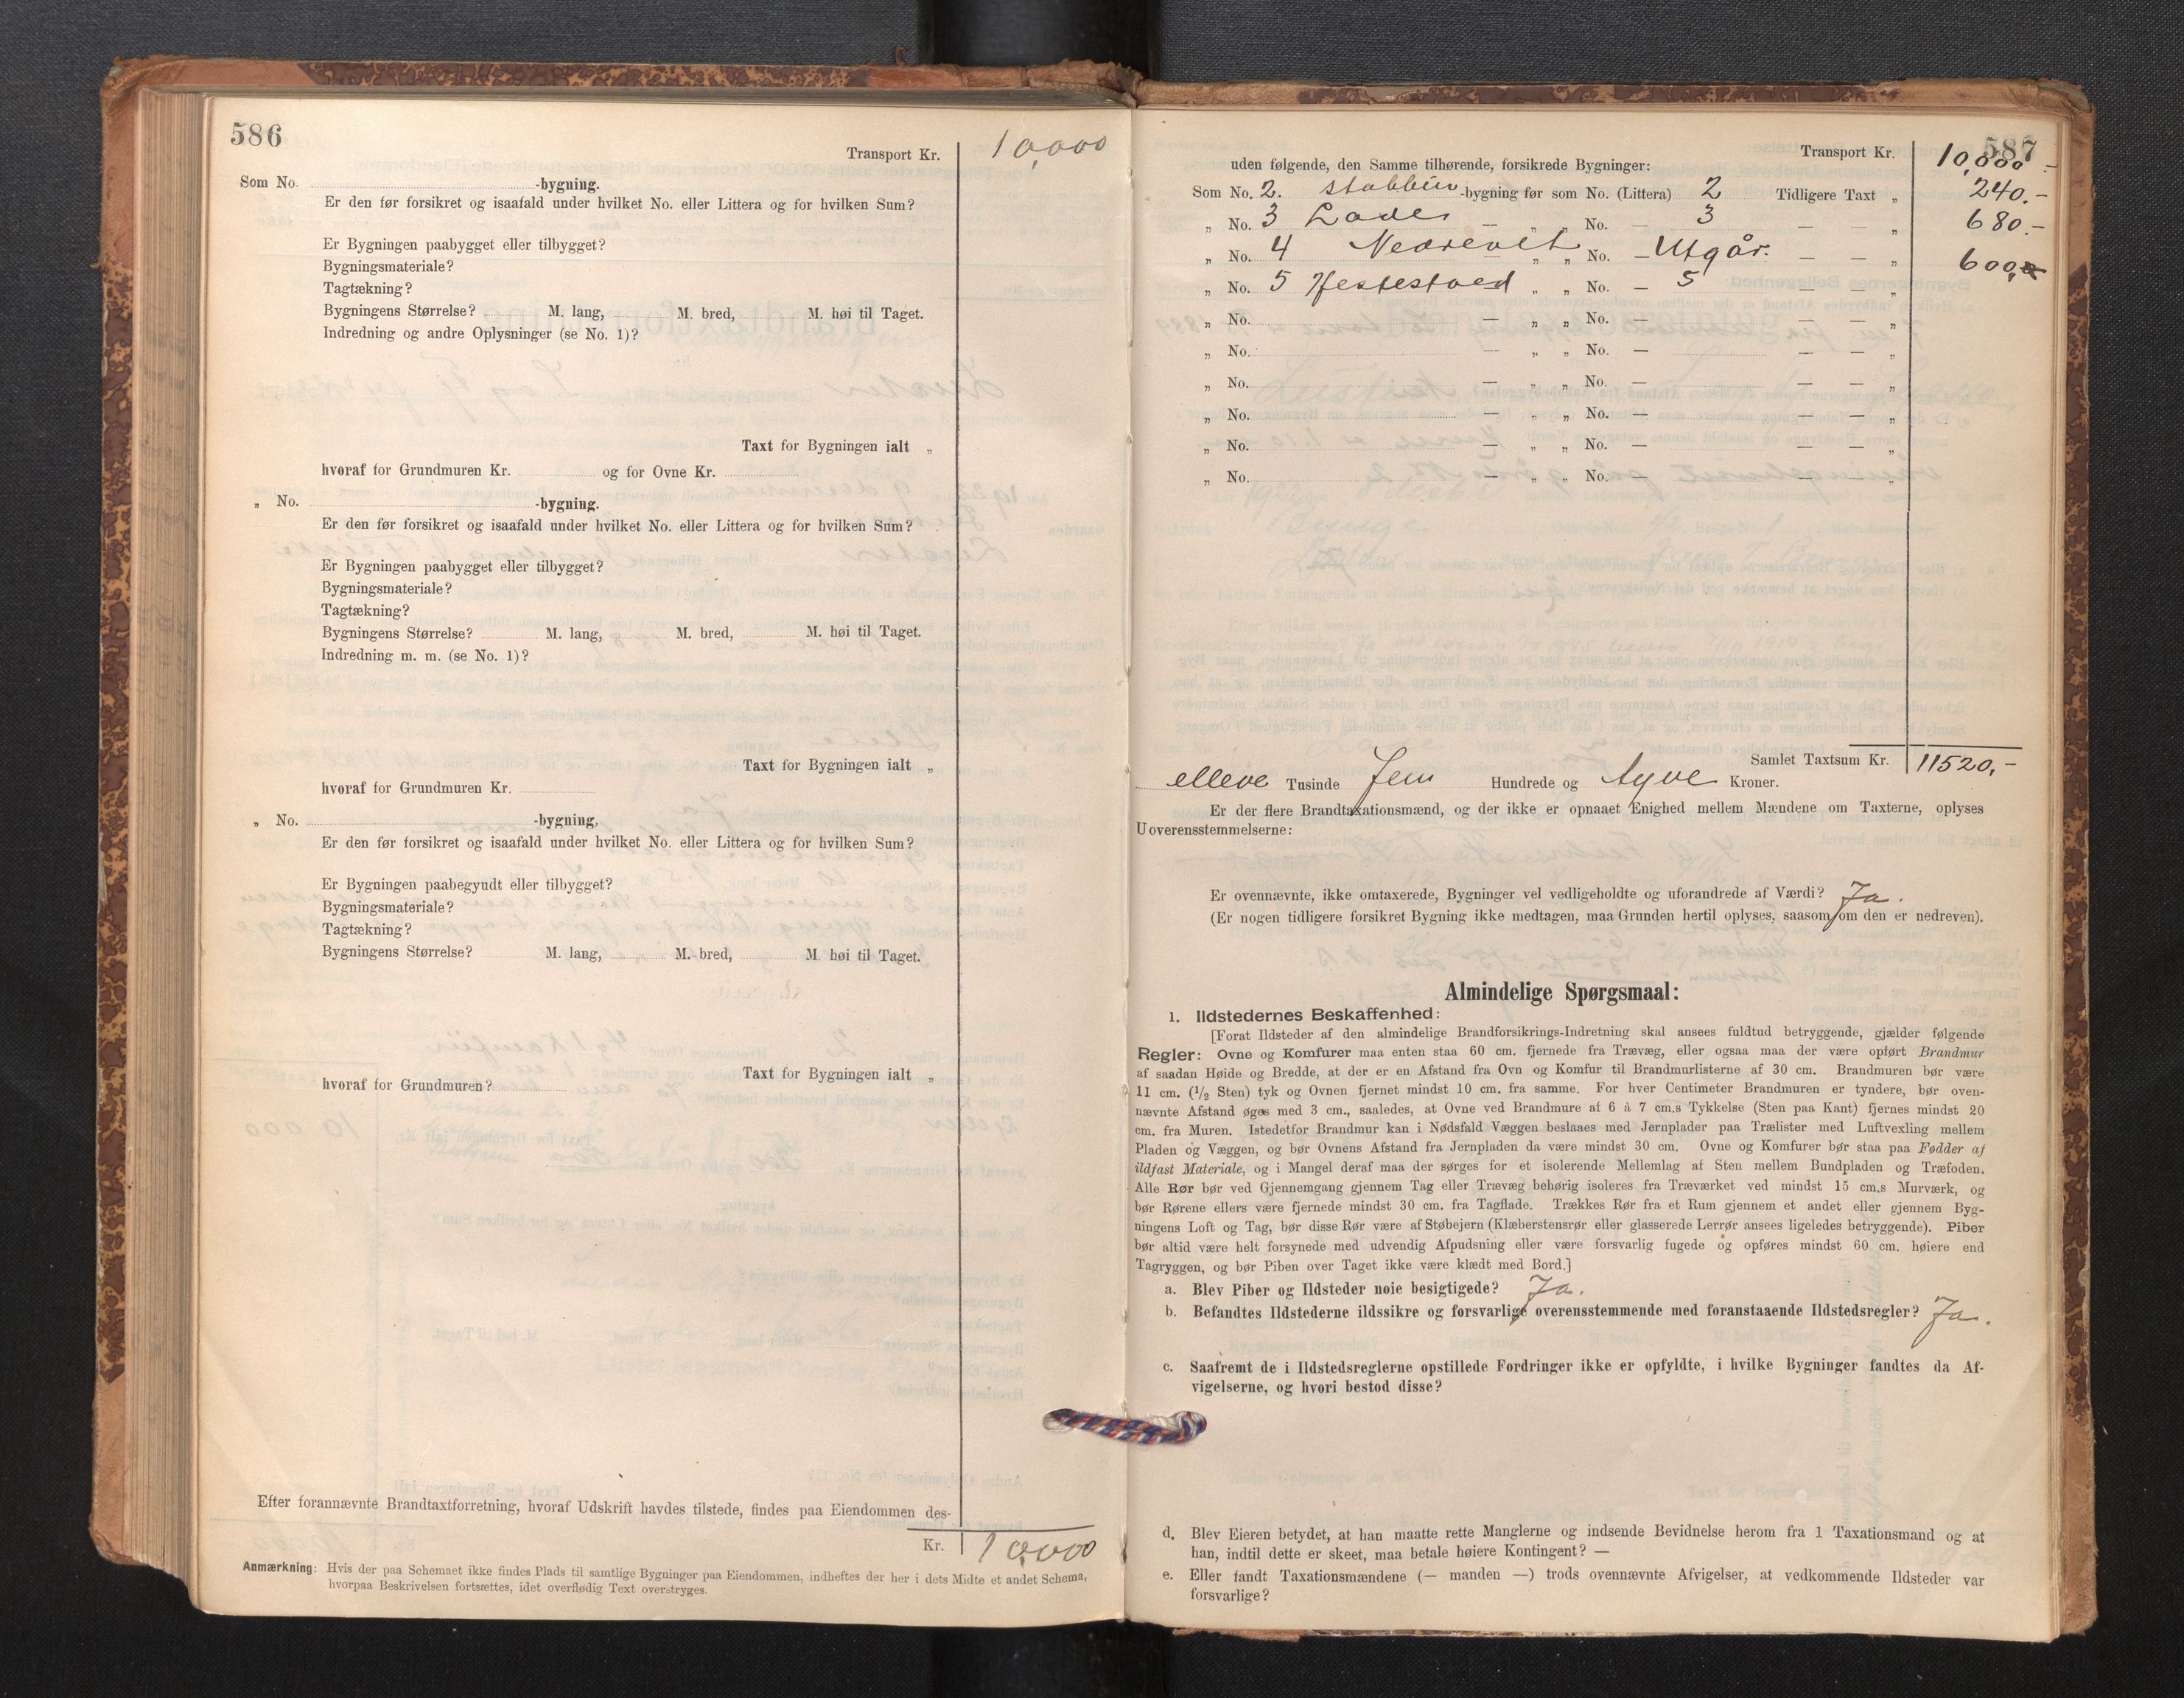 586
Transport Kr. 10,000
Som No. -bygning.
Er den før forsikret og isaafald under hvilket No. eller Littera og for hvilken Sum?
Er Bygningen paabygget eller tilbygget?
Bygningsmateriale?
Tagtækning?
Bygningens Størrelse? M. lang, M. bred, M. høi til Taget.
Indredning og andre Oplysninger (se No. 1)?
Taxt for Bygningen ialt „
hvoraf for Grundmuren Kr. og for Ovne Kr.
„ No. -bygning.
Er den før forsikret og isaafald under hvilket No. eller Littera og for hvilken Sum?
Er Bygningen paabygget eller tilbygget?
Bygningsmateriale?
Tagtækning?
Bygningens Størrelse? M. lang, M. bred, M. høi til Taget.
Indredning m. m. (se No. 1)?
Taxt for Bygningen ialt „
hvoraf for Grundmuren Kr.
„ No. -bygning,
Er den før forsikret og isaafald under hvilket No. eller Littera og for hvilken Sum?
Er Bygningen paabegyudt eller tilbygget?
Bygningsmateriale?
Tagtækning?
Bygningens Størrelse? M. lang, M. bred, M. høi til Taget.
Taxt for Bygningen ialt „
hvoraf for Grundmuren?
Efter forannævnte Brandtaxtforretning, hvoraf Udskrift havdes tilstede, findes paa Eiendommen des-
Kr. 10,000
Anmærkning: Hvis der paa Schemaet ikke findes Plads til samtlige Bygninger paa Eiendommen, indheftes der her i dets Midte et andet Schema,
hvorpaa Beskrivelsen fortsættes, idet overflødig Text overstryges.
587
Transport Kr. 10,000 -
uden følgende, den Samme tilhørende, forsikrede Bygninger:
Som No. 2. stabbur -bygning før som No. (Littera) 2 Tidligere Taxt „ 240.-
„ No. 3 Lade — „ „ No. — 3 — — „ 680.-
„ No. 4 — „ „ No. — Utgår. — — „
„ No. 5 Hestestoed „ „ No. — 5 — — „ 600,
„ No. — „ „ No. — — — „
„ No. — „ „ No. — — — „
„ No. — „ „ No. — — — „
„ No. — „ „ No. — — — „
„ No. — „ „ No. — — — „
„ No. — „ „ No. — — — „
Samlet Taxtsum Kr. 11520,-
elleve Tusinde fem Hundrede og tyve Kroner.
Er der flere Brandtaxationsmænd, og der ikke er opnaaet Enighed mellem Mændene om Taxterne, oplyses
Uoverensstemmelserne:
Er ovennævnte, ikke omtaxerede, Bygninger vel vedligeholdte og uforandrede af Værdi? Ja.
(Er nogen tidligere forsikret Bygning ikke medtagen, maa Grunden hertil oplyses, saasom om den er nedreven).
Almindelige Spørgsmaal:
1. Ildstedernes Beskaffenhed:
[Forat Ildsteder af den almindelige Brandforsikrings-Indretning skal ansees fuldtud betryggende, gjælder følgende
Regler: Ovne og Komfurer maa enten staa 60 cm. fjernede fra Trævæg, eller ogsaa maa der være opført Brandmur
af saadan Høide og Bredde, at der er en Afstand fra Ovn og Komfur til Brandmurlisterne af 30 cm. Brandmuren bør være
11 cm. (1/2 Sten) tyk og Ovnen fjernet mindst 10 cm. fra samme. For hver Centimeter Brandmuren er tyndere, bør oven-
nævnte Afstand øges med 3 cm., saaledes, at Ovne ved Brandmure af 6 à 7 cm.s Tykkelse (Sten paa Kant) fjernes mindst 20
cm. fra Muren. Istedetfor Brandmur kan i Nødsfald Væggen beslaaes med Jernplader paa Trælister med Luftvexling mellem
Pladen og Væggen, og bør Ovnens Afstand fra Jernpladen da være mindst 30 cm. Ovne og Komfurer bør staa paa Fødder af
ildfast Materiale, og i Mangel deraf maa der sørges for et isolerende Mellemlag af Sten mellem Bundpladen og Træfoden.
Alle Rør bør ved Gjennemgang gjennem Tag eller Trævæg behørig isoleres fra Træværket ved mindst 15 cm.s Murværk, og
bør Rørene ellers være fjernede mindst 30 cm. fra Tagflade. Trækkes Rør fra et Rum gjennem et andet eller gjennem Byg-
ningens Loft og Tag, bør disse Rør være af Støbejern (Klæberstensrør eller glasserede Lerrør ansees ligeledes betryggende). Piber
bør altid være helt forsynede med udvendig Afpudsning eller være forsvarlig fugede og opføres mindst 60 cm. høiere end
Tagryggen, og bør Piben over Taget ikke være klædt med Bord.]
a. Blev Piber og Ildsteder nøie besigtigede? Ja.
b. Befandtes Ildstederne ildssikre og forsvarlige overensstemmende med foranstaaende Ildstedsregler? Ja.
c. Saafremt de i Ildstedsreglerne opstillede Fordringer ikke er opfyldte, i hvilke Bygninger fandtes da Af-
vigelserne, og hvori bestod disse?
d. Blev Eieren betydet, at han maatte rette Manglerne og indsende Bevidnelse herom fra 1 Taxationsmand og at
han, indtil dette er skeet, maa betale høiere Kontingent? —
e. Eller fandt Taxationsmændene (— manden —) trods ovennævnte Afvigelser, at vedkommende Ildsteder var
forsvarlige?